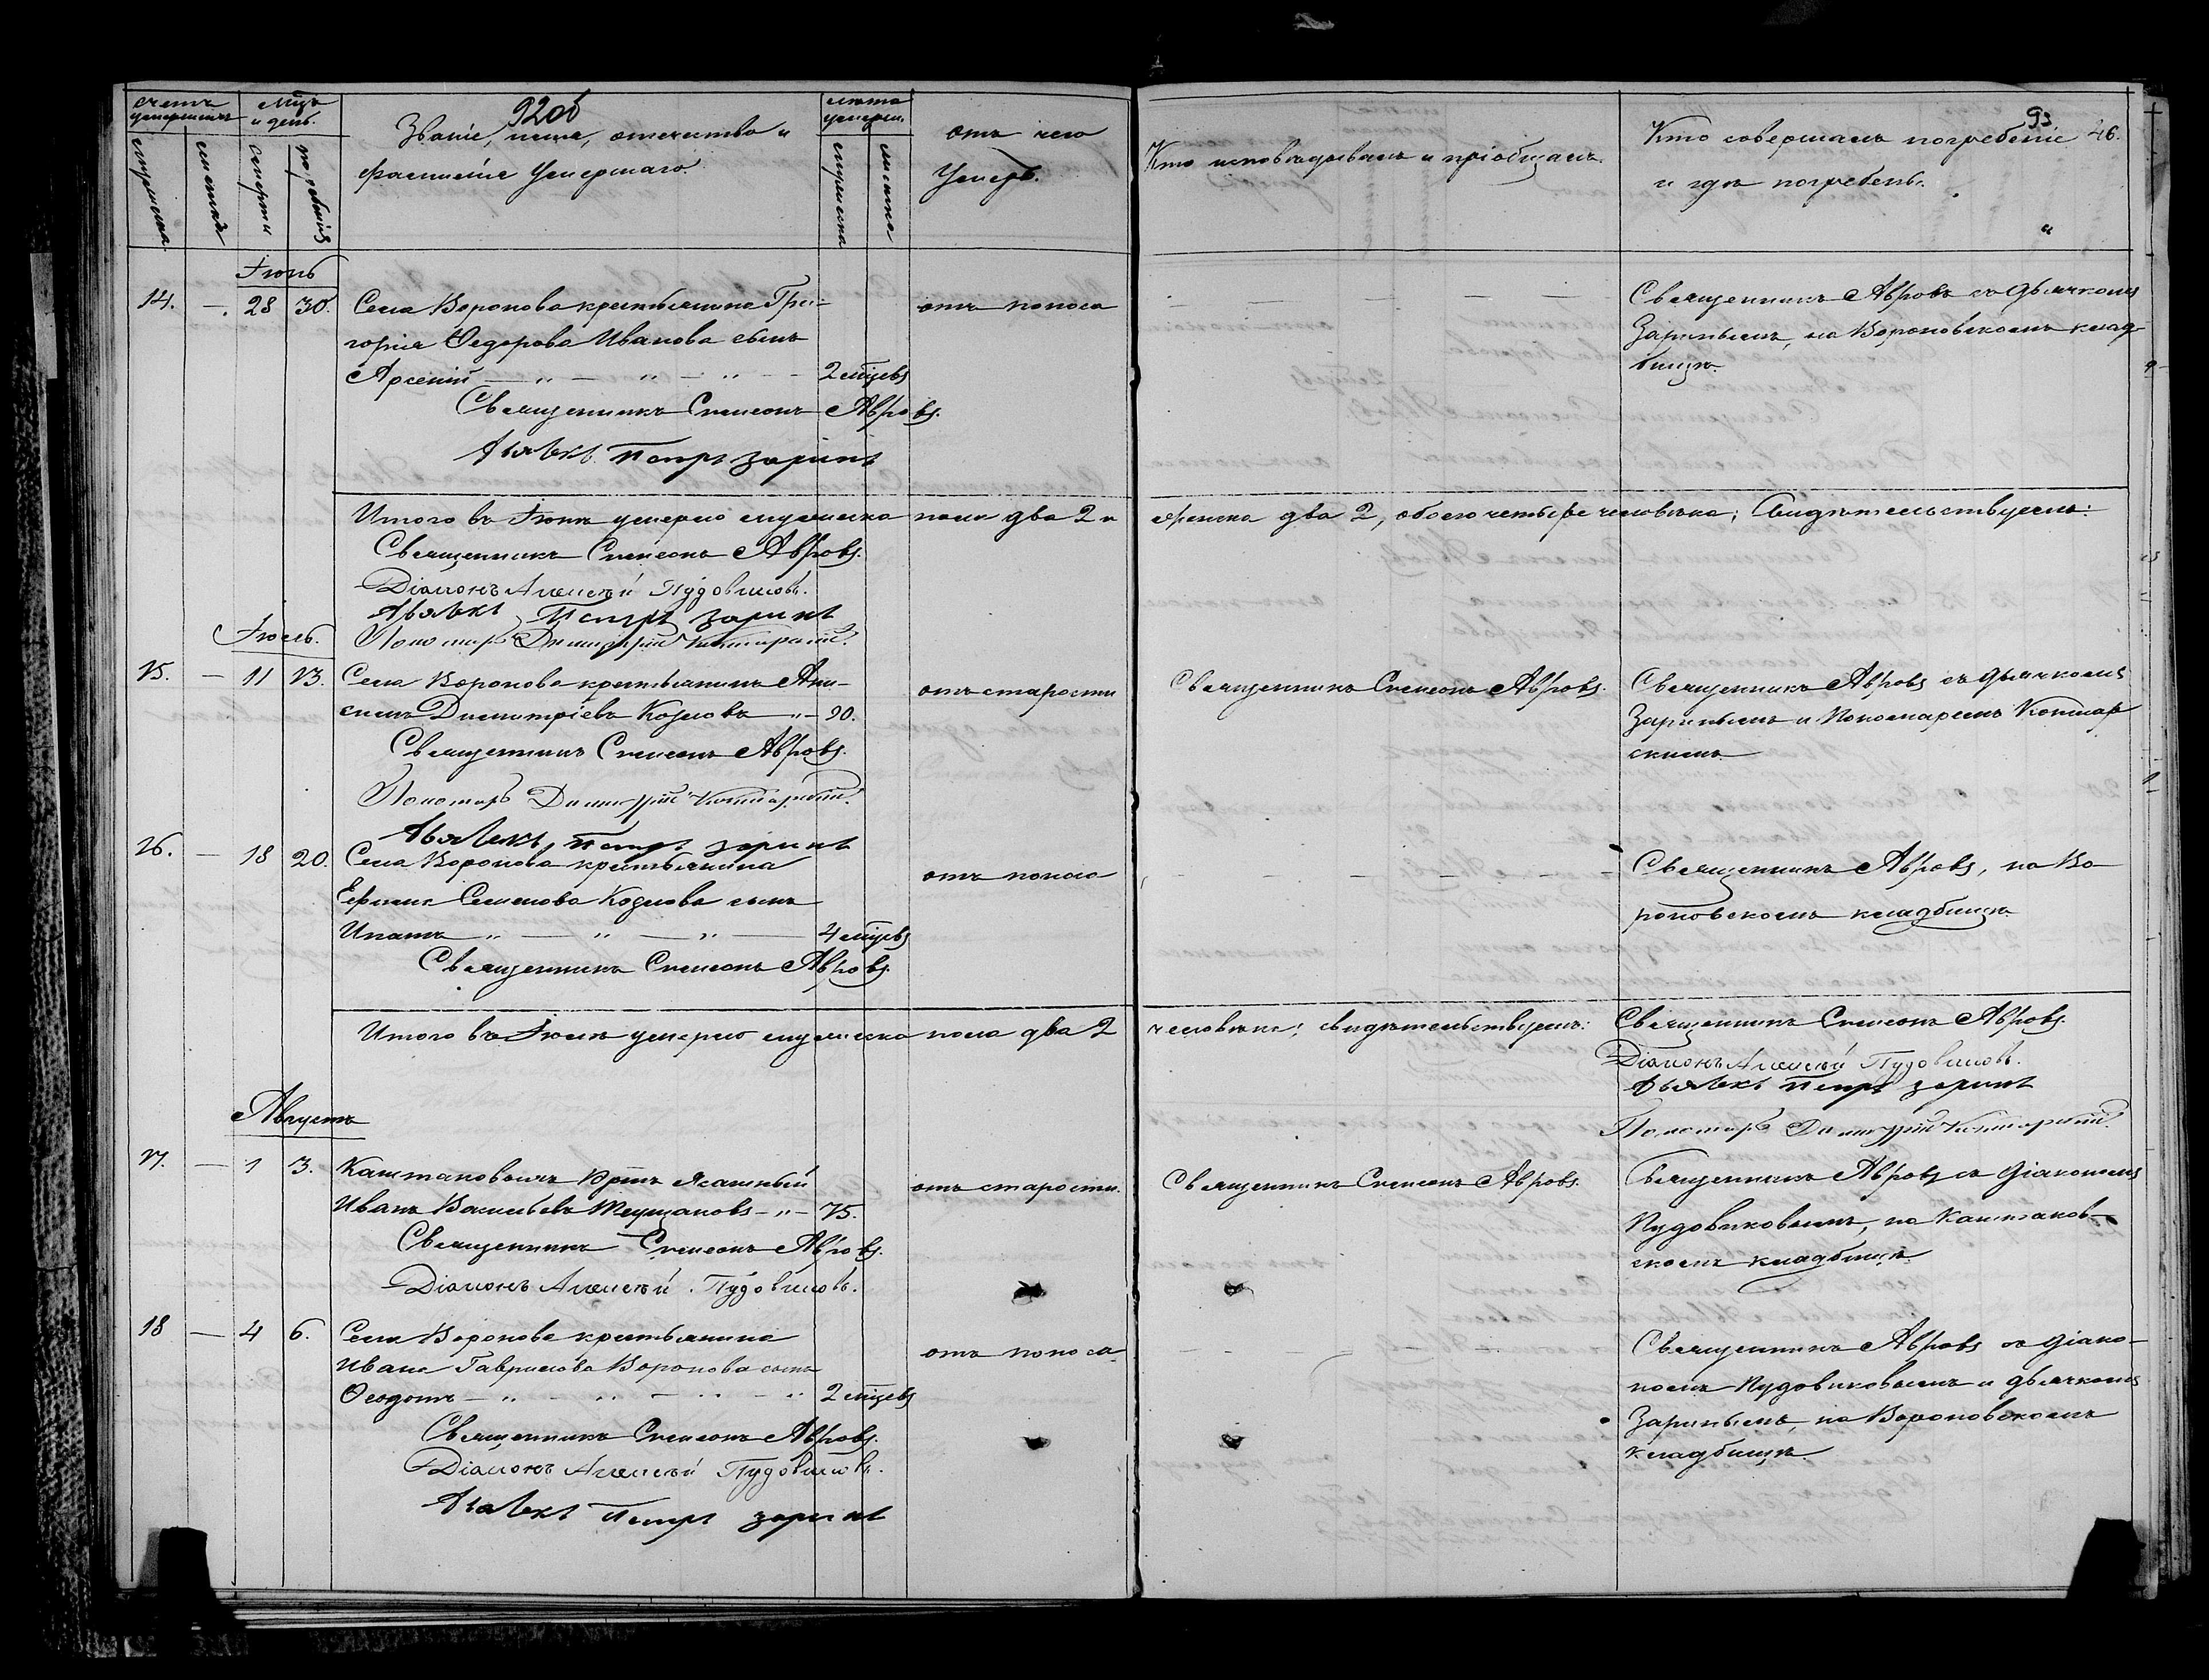 92об
93
46.
Счетъ умершихъ
Мѣц. и день.
Званіе, имя, отчество и
фамиліе Умершаго.
Лѣта умерш.
отъ чего
Умеръ.
Кто исповѣдывалъ и пріобщалъ.
Кто совершалъ погребеніе
и гдѣ погребены.
мужеска
женска
смерти
погребенія
мужеска
женска
Іюнь
14. — 28 30. Села Воронова крестьянина Гри-
горія Ѳедорова Иванова сынъ
Арсеній 2 мѣцевъ
отъ поноса
Священникъ Авровъ съ дьячкомъ
Заринымъ, на Вороновскомъ клад-
бищѣ.
Священникъ Симеонъ Авровъ.
Дьячекъ Петръ Заринъ
Итого въ Іюнѣ умерло мужеска пола два 2 и женска два 2, обоего четыре человѣка; Свидѣтельствуемъ:
Священникъ Симеонъ Авровъ.
Діаконъ Алексѣй Пудовиковъ.
Дьячекъ Петръ Заринъ
Пономарь Димитрій
Іюль.
15. — 11 13. Села Воронова крестьянинъ
Димитріевъ Козловъ 90.
отъ старости
Священникъ Симеонъ Авровъ.
Священникъ Авровъ съ дьячкомъ
Заринымъ и Пономаремъ
скимъ
Священникъ Симеонъ Авровъ.
Пономарь Димитрій
Дьячекъ Петръ Заринъ
16. — 18 20. Села Воронова крестьянина
Ермила Семенова Козлова сынъ
Ипатъ 4 мѣцевъ
отъ поноса
Священникъ Авровъ, на Во-
роновскомъ кладбищѣ.
Священникъ Симеонъ Авровъ.
Итого въ Іюлѣ умерло мужеска пола два 2 человѣка; свидѣтельствуемъ:
Священникъ Симеонъ Авровъ.
Діаконъ Алексѣй Пудовиковъ.
Дьячекъ Петръ Заринъ
Пономарь Димитрій
Августъ
17. — 1 3. Каштаковыхъ Юртъ Ясашный
Иванъ Васильевъ 75.
отъ старости.
Священникъ Симеонъ Авровъ.
Священникъ Авровъ съ діакономъ
Пудовиковымъ, на Каштаков-
скомъ кладбищѣ.
Священникъ Симеонъ Авровъ.
Діаконъ Алексѣй Пудовиковъ.
18 — 4 6. Села Воронова крестьянина
Ивана Гаврилова Воронова сынъ
Ѳеодотъ 2 мѣцевъ
отъ поноса
Священникъ Авровъ съ діако-
номъ Пудовиковымъ и дьячкомъ
Заринымъ, на Вороновскомъ
кладбищѣ.
Священникъ Симеонъ Авровъ.
Діаконъ Алексѣй Пудовиковъ.
Дьячекъ Петръ Заринъ